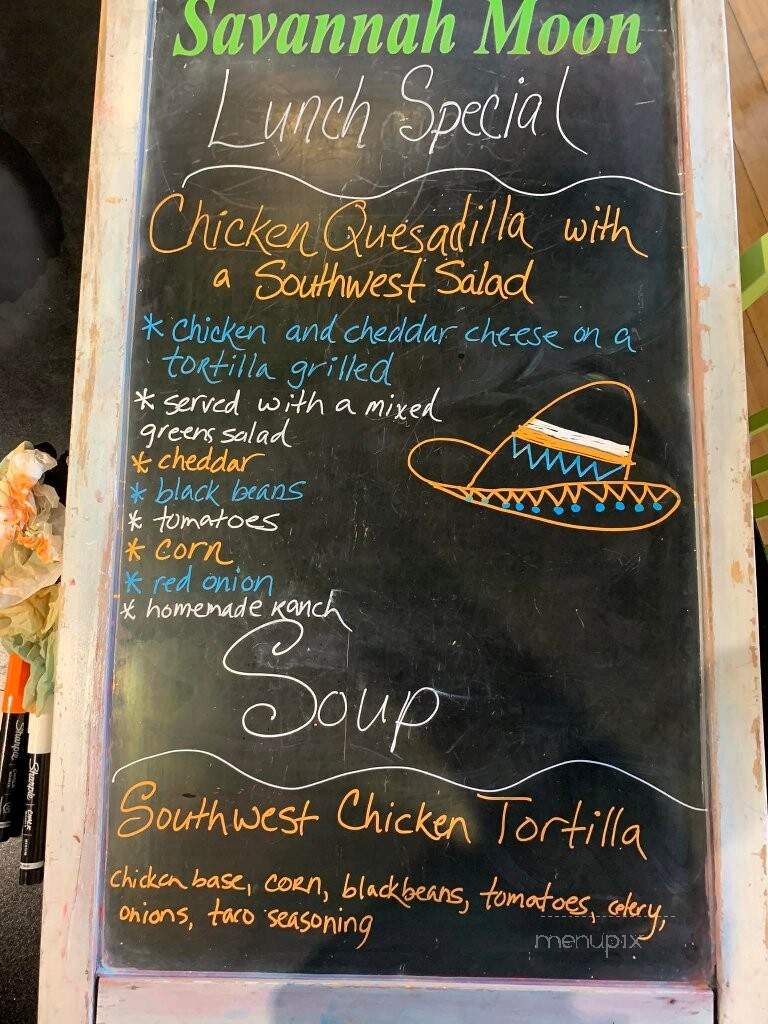 Savannah Moon
Lunch Special
Chicken Quesadilla with
a Southwest Salad
* chicken and cheddar cheese on a
tortilla grilled
* served with a mixed
greens salad
* cheddar
* black beans
* tomatoes
* corn
* red onion
* homemade Ranch
Soup
Southwest Chicken Tortilla
chicken base, corn, blackbeans, tomatoes, celery,
onions, taco seasoning
menupix
Sharpie
Sharpie